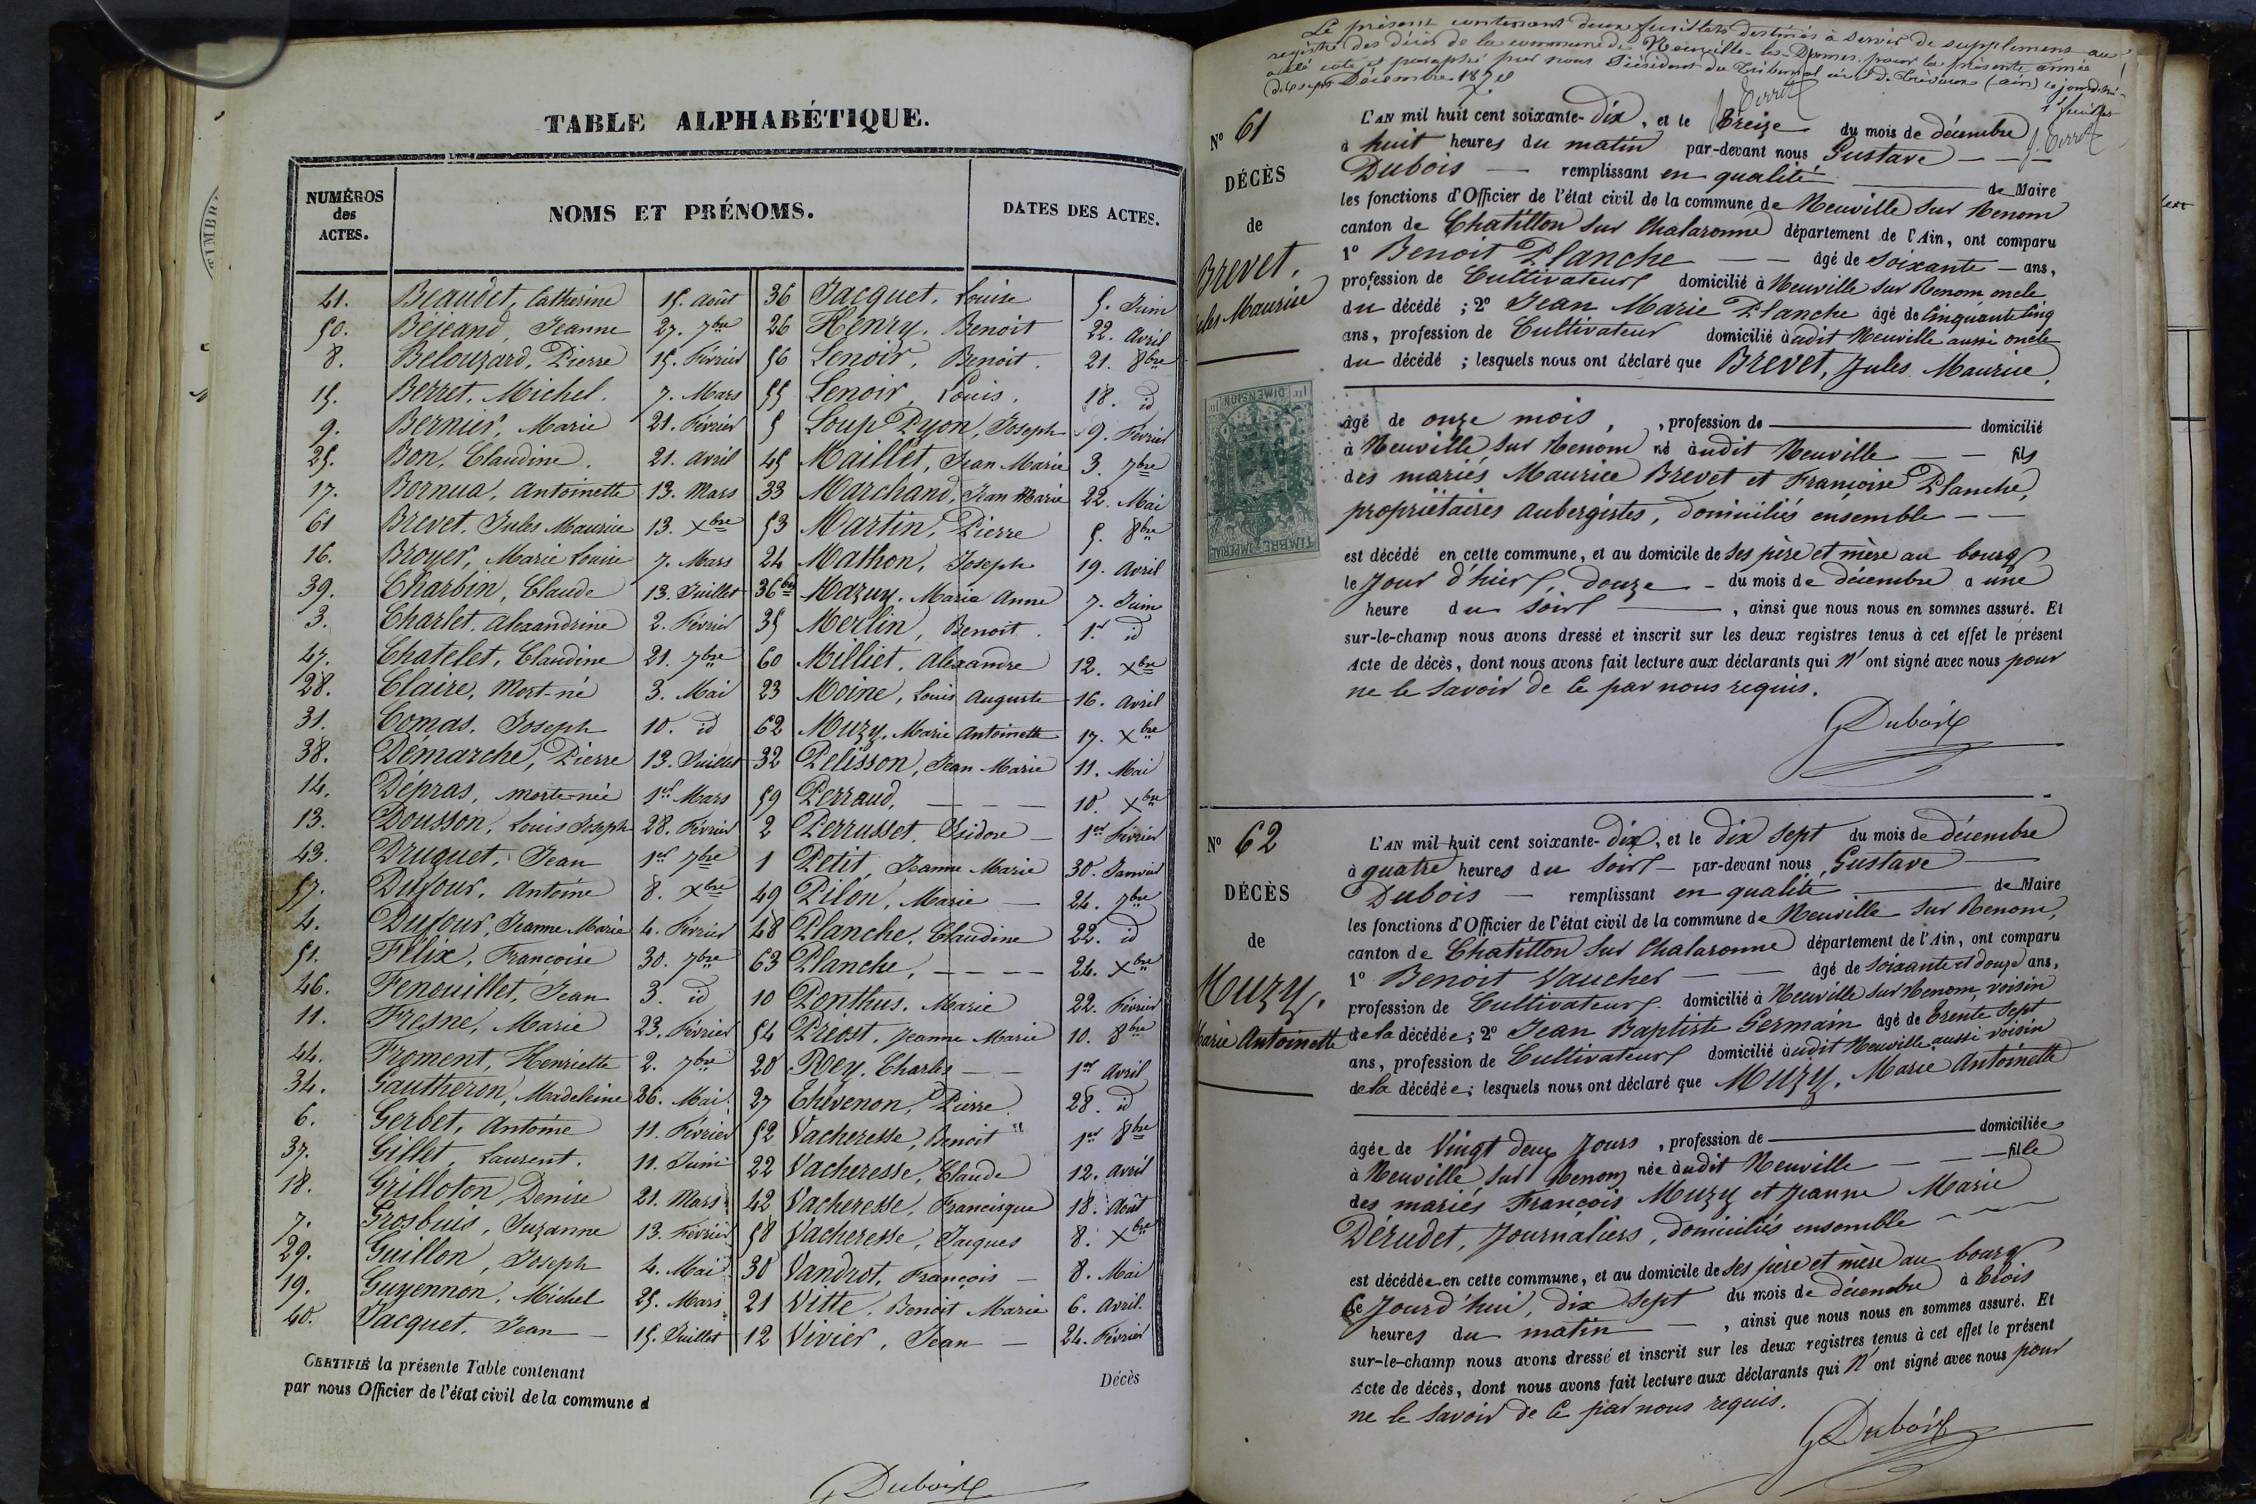 TABLE ALPHABÉTIQUE.
NUMÉROS des ACTES.
NOMS ET PRÉNOMS.
DATES DES ACTES.
41. Beaudet, Catherine 15. Août
50. Béjeand, Jeanne 27. 7bre
8. Belouzard, Pierre 15. Février
15. Berret, Michel. 7. Mars
9. Bernier, Marie 21. Février
25. Bon, Claudine. 21. avril
17. Bornua, Antoinette 13. Mars
61 Brevet, Jules Maurice 13. Xbre
16. Broyer, Marie Louise 7. Mars
39. Charbin, Claude 13. Juillet
3. Charlet, Alexandrine 2. Février
47. Chatelet, Claudine 21. 7bre
28. Claire, Mort-né 3. Mai
31. Comas, Joseph 10. id
38. Démarche, Pierre 13. Juillet
14. Dépras, morte-née 1er Mars
13. Dousson, Louis Joseph 28. Février
43. Druguet, Jean 1er 7bre
57. Dufour, Antoine 8. Xbre
4. Dufour, Jeanne Marie 4. Février
51. Félix, Françoise 30. 7bre
46. Fenouillet, Jean 3. id
11. Fresne, Marie 23. Février
44. Froment, Henriette 2. 7bre
34. Gautheron, Madeleine 26. Mai
6. Gerbet, Antoine 11. Février
37. Gillet, Laurent. 11. Juin
18. Grilloton, Denise 21. Mars
7. Grosbuis, Suzanne 13. Février
29. Guillon, Joseph 4. Mai
19. Guyennon, Michel 25. Mars
40. Jacquet, Jean 15. Juillet
36 Jacquet, Louise 5. Juin
26 Henry, Benoit 22. Avril
56 Lenoir, Benoit. 21. 8bre
55 Lenoir, Louis. 18. id
5 Loup Pyon, Joseph 9. Février
45 Maillet, Jean Marie 3. 7bre
33 Marchand, Jean Marie 22. Mai
53 Martin, Pierre 5. 8bre
24 Mathon, Joseph 19. Avril
36bis Mazuy, Marie Anne 7. Juin
35 Merlin, Benoit. 1er id
60 Milliet, Alexandre 12. Xbre
23 Moine, Louis Auguste 16. Avril
62 Muzy, Marie Antoinette 17. Xbre
32 Pelisson, Jean Marie 11. Mai
59 Perraud, — — — 10. Xbre
2 Perrusset, Isidore — 1er Février
1 Petit, Jeanne Marie 30. Janvier
49 Pilon, Marie — 24. 7bre
48 Planche, Claudine 22. id
63 Planche, — — — — 24. Xbre
10 Ponthus, Marie 22. Février
54 Préost, Jeanne Marie 10. 8bre
20 Rey, Charles — — 1er Avril
27 Thévenon, Pierre 28. id
52 Vacheresse, Benoit 1er 8bre
22 Vacheresse, Claude 12. Avril
42 Vacheresse, Francisque 18. Août
58 Vacheresse, Jacques 8. Xbre
30 Vandrot, François — 8. Mai
21 Vitte, Benoit Marie 6. Avril.
12 Vivier, Jean — 24. Février
CERTIFIÉ la présente Table contenant Décès
par nous Officier de l'état civil de la commune d
GDubois
Le présent contenant deux feuillets destinés à servir de supplément au
registre des décès de la commune de Neuville-les-Dames pour la présente année
a été coté et paraphé par nous Président du Tribunal civil de Trévoux (ain) ce jourd'hui
dix sept Décembre 1870
1er feuillet
No 61
DÉCÈS
de
Brevet,
Jules Maurice
L'AN mil huit cent soixante-dix, et le treize du mois de décembre
à huit heures du matin par-devant nous Gustave — —
Dubois — remplissant en qualité — de Maire
les fonctions d'Officier de l'état civil de la commune de Neuville sur Renom
canton de Chatillon sur Chalaronne département de l'Ain, ont comparu
1° Benoit Planche — — âgé de soixante — ans,
profession de Cultivateur domicilié à Neuville sur Renom, oncle
du décédé ; 2° Jean Marie Planche âgé de Cinquante Cinq
ans, profession de Cultivateur domicilié audit Neuville aussi oncle
du décédé ; lesquels nous ont déclaré que Brevet, Jules Maurice,
âgé de onze mois, , profession de — domicilié
à Neuville sur Renom né audit Neuville — — fils
des mariés Maurice Brevet et Françoise Planche,
propriétaires aubergistes, domiciliés ensemble — —
est décédé en cette commune, et au domicile de ses père et mère au bourg
le Jour d'hier, douze — du mois de décembre à une
heure du soir — , ainsi que nous nous en sommes assuré. Et
sur-le-champ nous avons dressé et inscrit sur les deux registres tenus à cet effet le présent
Acte de décès, dont nous avons fait lecture aux déclarants qui n'ont signé avec nous pour
ne le savoir de ce par nous requis.
GDubois
DIMENSION
TIMBRE IMPÉRIAL
No 62
DÉCÈS
de
Muzy,
Marie Antoinette
L'AN mil huit cent soixante-dix, et le dix sept du mois de décembre
à quatre heures du soir — par-devant nous Gustave —
Dubois — remplissant en qualité — de Maire
les fonctions d'Officier de l'état civil de la commune de Neuville sur Renom,
canton de Chatillon sur Chalaronne département de l'Ain, ont comparu
1° Benoit Vaucher — — âgé de soixante et douze ans,
profession de Cultivateur domicilié à Neuville sur Renom, voisin
de la décédée ; 2° Jean Baptiste Germain âgé de trente sept
ans, profession de Cultivateur domicilié audit Neuville aussi voisin
de la décédée ; lesquels nous ont déclaré que Muzy, Marie Antoinette
âgée de Vingt deux Jours , profession de — domiciliée
à Neuville sur Renom née audit Neuville — — fille
des mariés François Muzy et Jeanne Marie
Dérudet, Journaliers, domiciliés ensemble
est décédée en cette commune, et au domicile de ses père et mère au bourg
Ce Jourd'hui, dix sept du mois de décembre à trois
heures du matin — , ainsi que nous nous en sommes assuré. Et
sur-le-champ nous avons dressé et inscrit sur les deux registres tenus à cet effet le présent
Acte de décès, dont nous avons fait lecture aux déclarants qui n'ont signé avec nous pour
ne le savoir de ce par nous requis.
GDubois